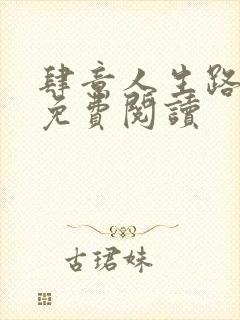 肆意人生路
免費閱讀
古珺妹